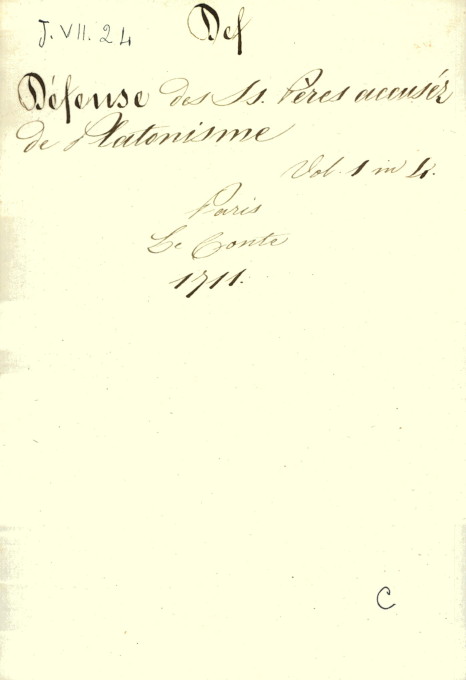 J. VII. 24 Def
Défense des Ss. Pères accuséz
de Platonisme
Vol. 1 in 4.
Paris
Le Conte
1711.
C